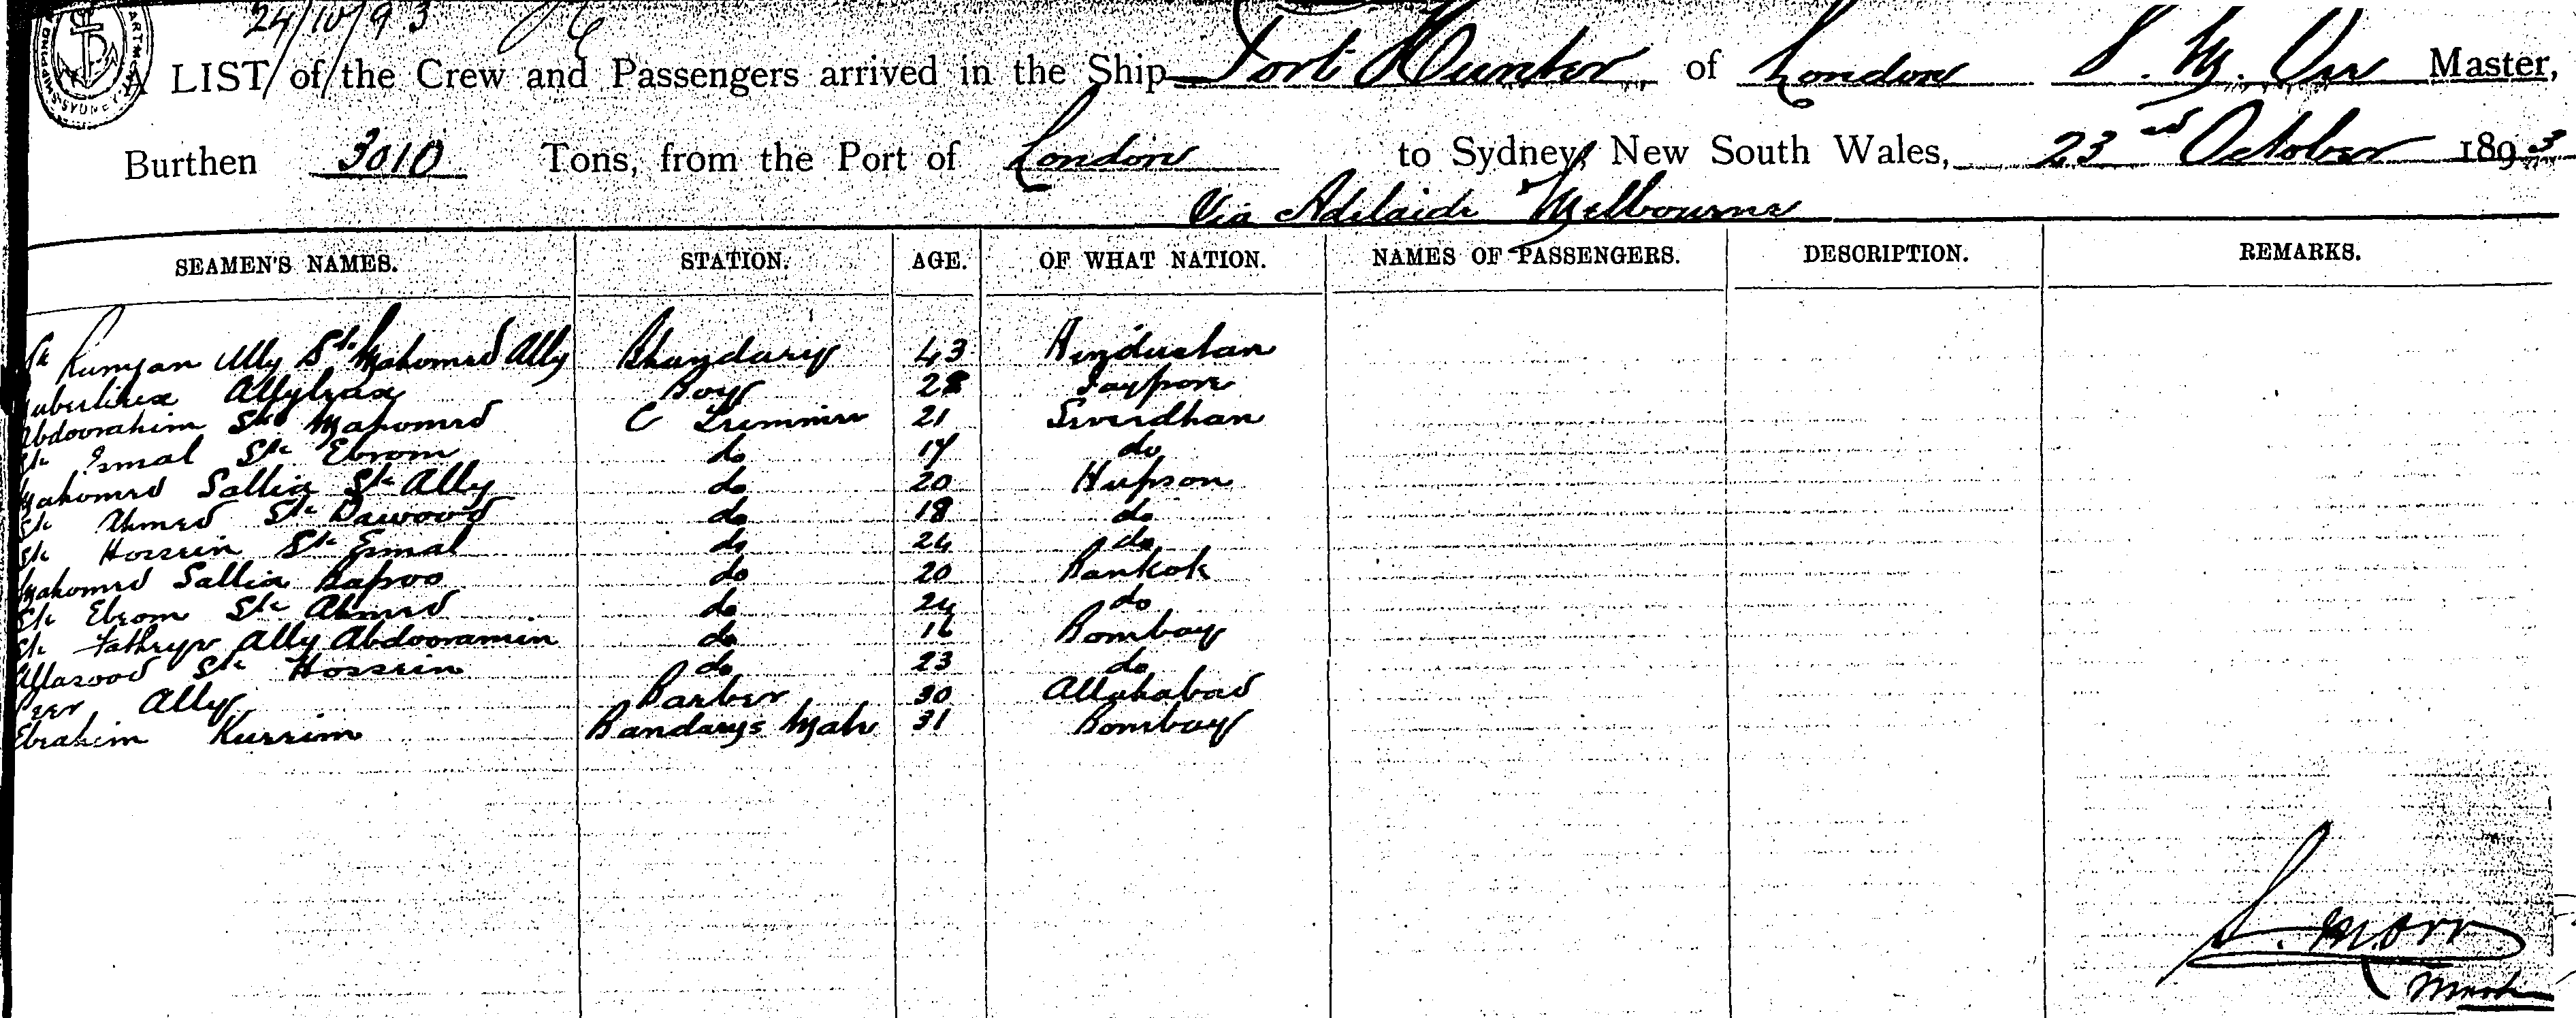 24/10/93
A LIST of the Crew and Passengers arrived in the Ship Port Hunter of London S. M. Orr Master,
Burthen 3010 Tons, from the Port of London to Sydney, New South Wales, 23rd October 1893
Via Adelaide Melbourne
SEAMEN'S NAMES. STATION. AGE. OF WHAT NATION. NAMES OF PASSENGERS. DESCRIPTION. REMARKS.
Sk Rumjan Ally Sk Mahomed Ally Bhandary 43 Hindustan
Allybax Boy 28 Jaypore
Abdoorahim Sk Mahomed C Trimmer 21 Siverdhan
Sk Ismal Sk Ebrom do 17 do
Mahomed Sallia Sk Ally do 20 Hupson
Sk Ahmed Sk Dawood do 18 do
Sk Hossein Sk Esmal do 24 do
Mahomed Sallia Bapoo do 20 Bankok
Sk Ebrom Sk Ahmed do 24 do
Sk Ally Abdooramin do 16 Bombay
Sk Hossein do 23 do
Peer Ally Barber 30 Allahabad
Ebrahim Kurrim Bandarys Mate 31 Bombay
S. M. Orr
Master